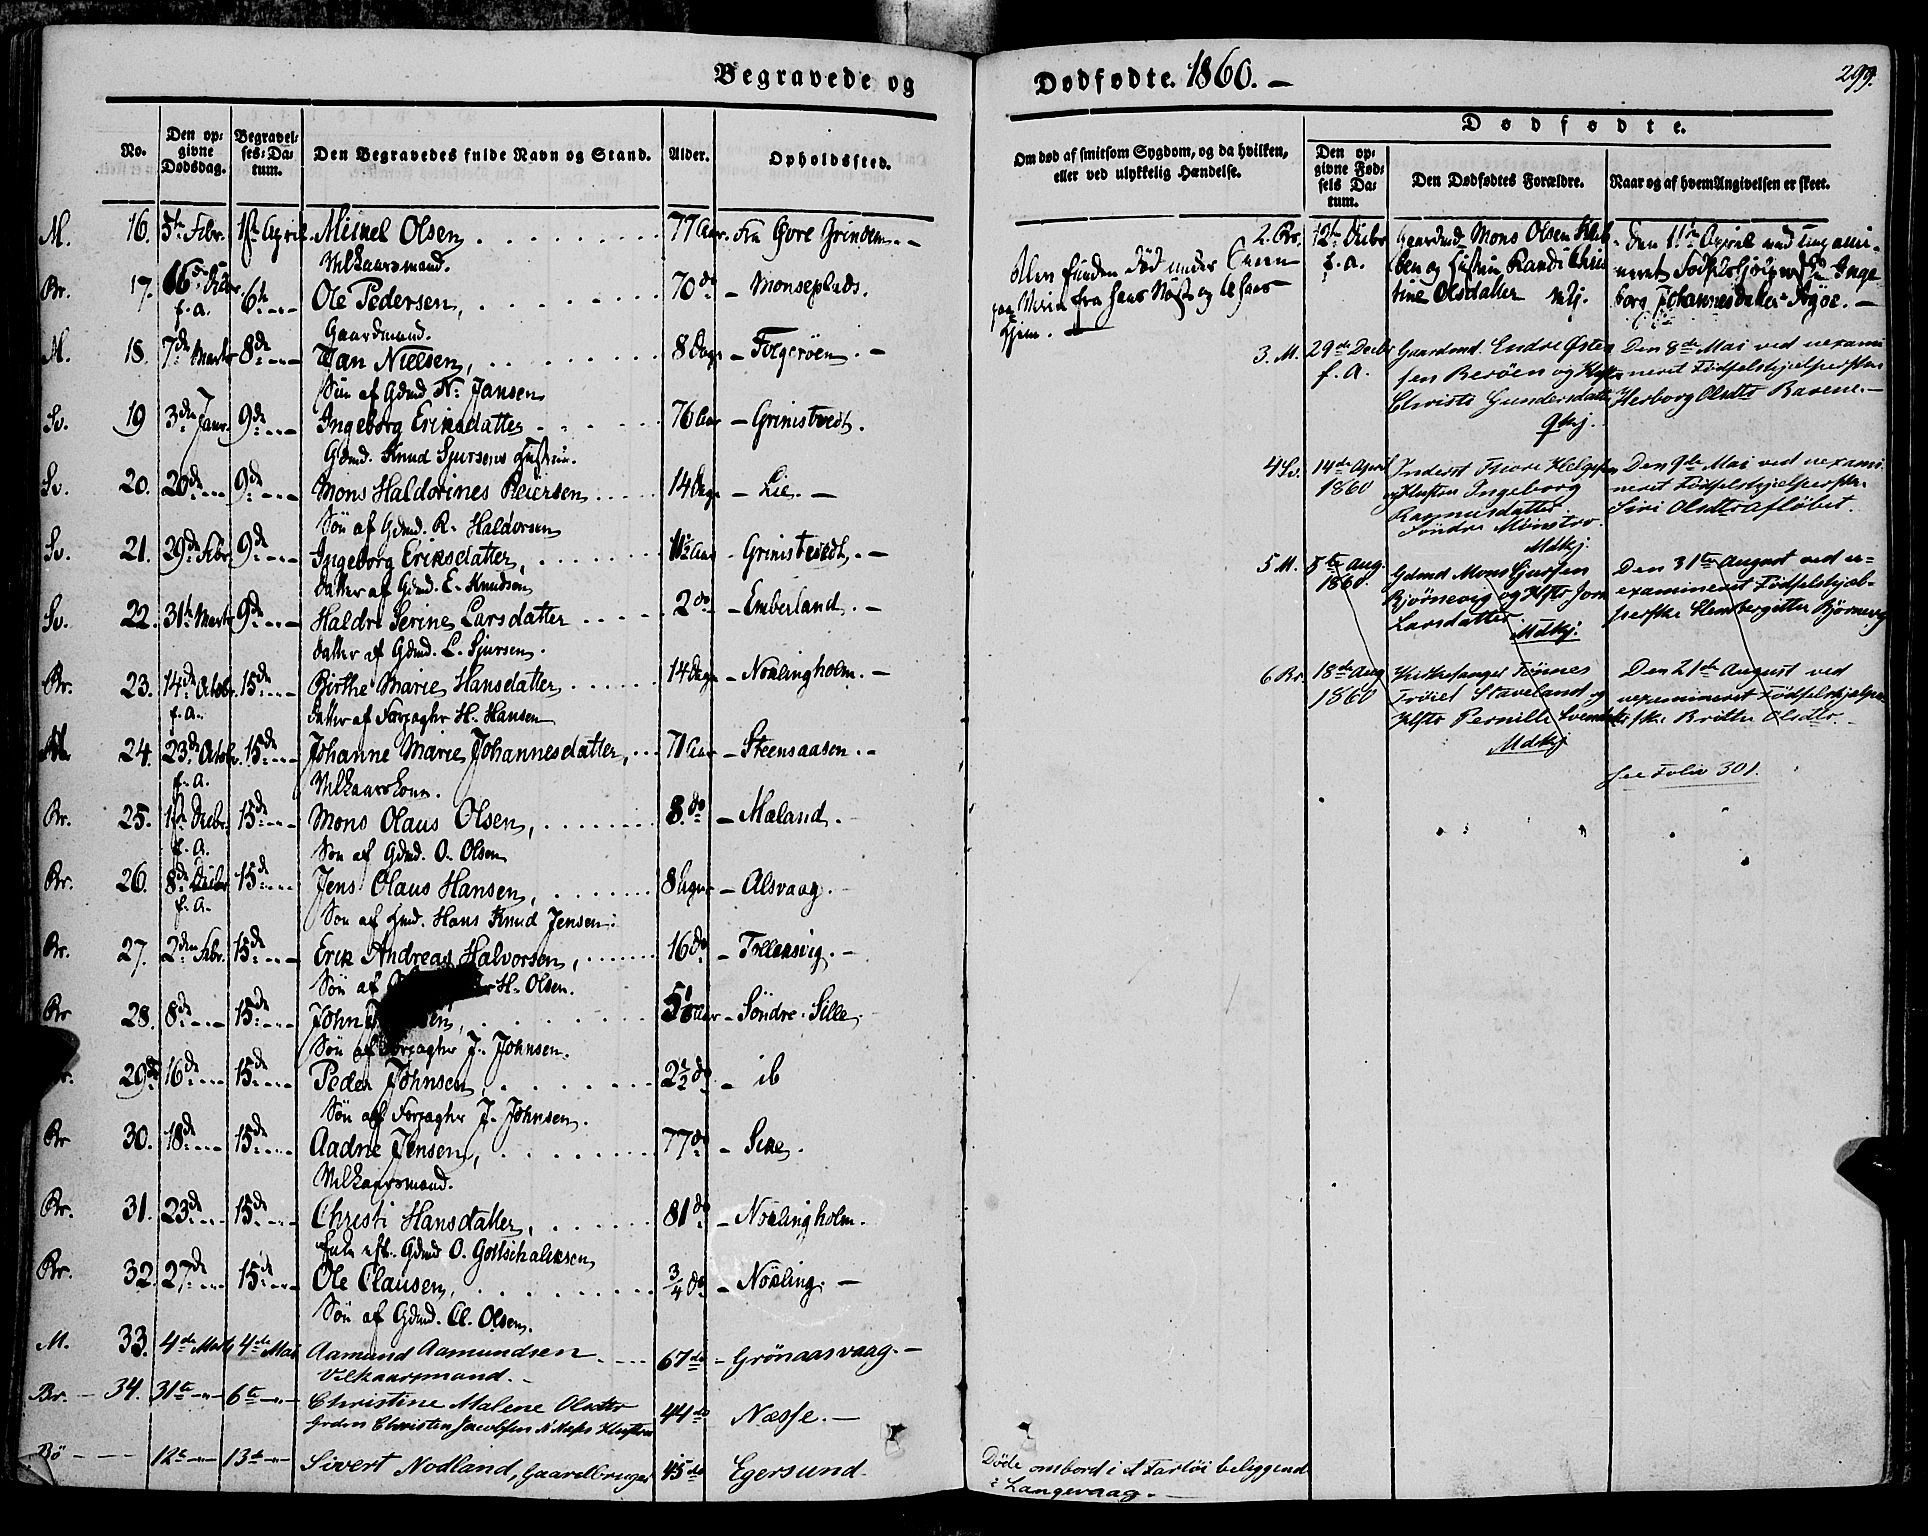 Begravede og
Dødfødte. 1860. –
299.
No.
Den opgivne Dødsdag.
Begravelses-Datum.
Den Begravedes fulde Navn og Stand.
Alder.
Opholdssted.
Om død af smitsom Sygdom, og da hvilken, eller ved ulykkelig Hændelse.
Dødfødte.
Den opgivne Fødsels Datum.
Den Dødfødtes Forældre.
Naar og af hvem Angivelsen er skeet.
M. 16. 5te Febr. 1ste April. Michel Olsen 77 Aar. Fra Øvre Grindem. –
Vilkaarsmand.
Br. 17. 16de Decbr. f.a. 6te Ole Pedersen, 70 do – Monseplads.
Gaardmand.
M. 18. 7de Marts 8de Jan Nielsen, 8 Dage – Folgerøen. –
Søn af Gdmd. N. Jansen
Sv. 19 3die Janr. 9de Ingeborg Eriksdatter 76 Aar – Grinistvedt.
Gdmd. Knud Sjursens Hustru.
Sv. 20. 20de 9de Mons Haldorines Reiersen 14 Dage – Lie. –
Søn af Gdmd. R. Haldorsen
Sv. 21. 29de Febr. 9de Ingeborg Eriksdatter, 11½ Aar – Grinistvedt. –
Datter af Gdmd. E. Knudsen
Sv. 22. 31te Marts 9de Haldri Serine Larsdatter 2 do – Emberland. –
Datter af Gdmd. L. Sjursen.
Br. 23. 14de Octobr. f.a. 15de Birthe Marie Hansdatter 14 Dage – Nøklingholm. –
Datter af Forpagter H. Hansen
24. 23de Octobr. f.a. 15de Johanne Marie Johannesdatter, 71 Aar – Steensaasen. –
Vilkaarskone.
Br. 25. 1ste Decbr. f.a. 15de Mons Olaus Olsen, 8. do – Mæland.
Søn af Gdmd. O. Olsen
Br. 26. 8de Decbr f.a. 15de Jens Olaus Hansen, 8 Dage – Alsvaag.
Søn af Hmd. Hans Knud Jensen.
Br. 27. 2den Febr. 15de Erik Andreas Halvorsen, 16 do – Tollaksvig. –
Søn af H. Olsen.
Br. 28. 8de 15de John Aar – Søndre Sille.
Søn af Forpagter J. Johnsen.
29 16de 15de Peder Johnsen, 2½ do – ib
Søn af Forpagter J. Johnsen.
Br 30. 18de 15de Aadne Jensen, 77 do – Sille.
Vilkaarsmand.
Br. 31. 23de 15de Christi Hansdatter, 81 do – Nøklingholm.
Enke eft. Gdmd O. Gottschalksen
Br. 32. 27de 15de Ole Clausen, ¾ do – Nøkling. –
Søn af Gdmd. Cl. Olsen.
M. 33. 4de Marts 4de Mai Aamund Aamundsen 67 do – Grønaasvaag. –
Vilkaarsmand. –
Br. – 34. 31te 6te Christine Malene Olsdtr 44 do Næsse. –
Christen Jacobsen Hustru
Bø – – – 12te 13de Sivert Nodland, Gaardbruger 45 do Egersund.
Blev funden død under
paa Veien fra hans Nøst og til hans
Hjem. –
2. Br. 12te Decbr f.a. Gaardmd Mons Olsen
og Hustru Randi Chris
tine Olsdatter Mkj.
Den 11te April ved uexami-
neret Fødselshjelperske Inge
borg Johannesdatter Ågøe. –
3. M. 29de Decbr f.a. Gaardmd. Endre Østen
sen Berøen og Hustru
Christi Gundersdatter
Qkj.
Den 8de Mai ved uexami
neret Fødselshjelperske
Herborg Olsdtr Barene. –
4 Sv. 14de April 1860 Inderst Thore Helgesen
og Hustru Ingeborg
Rasmusdatter
Søndre Mønstre.
Mdkj.
Den 9de Mai ved uexami
neret Fødselshjelperske
Siri Olsdtr Afløbet.
5 M. 5te Aug. 1860 Gdmd Mons Sjursen
Bjørnevig og Hstr Jorn
Larsdatter
Mdkj.
Den 31te August ved u-
examineret Fødselshjel-
perske Bjørnevig
6 Br. 18de Aug 1860 Kirkesanger Tønnes
Trøiel Staveland og
Hstr Pernille Svends
Mdkj
Den 21de August ved
uexamineret Fødselshjelper
ske Brithe Olsdtr. –
see Folio 301.
Døde ombord i et Fartøi beliggende
i Langevaag. –